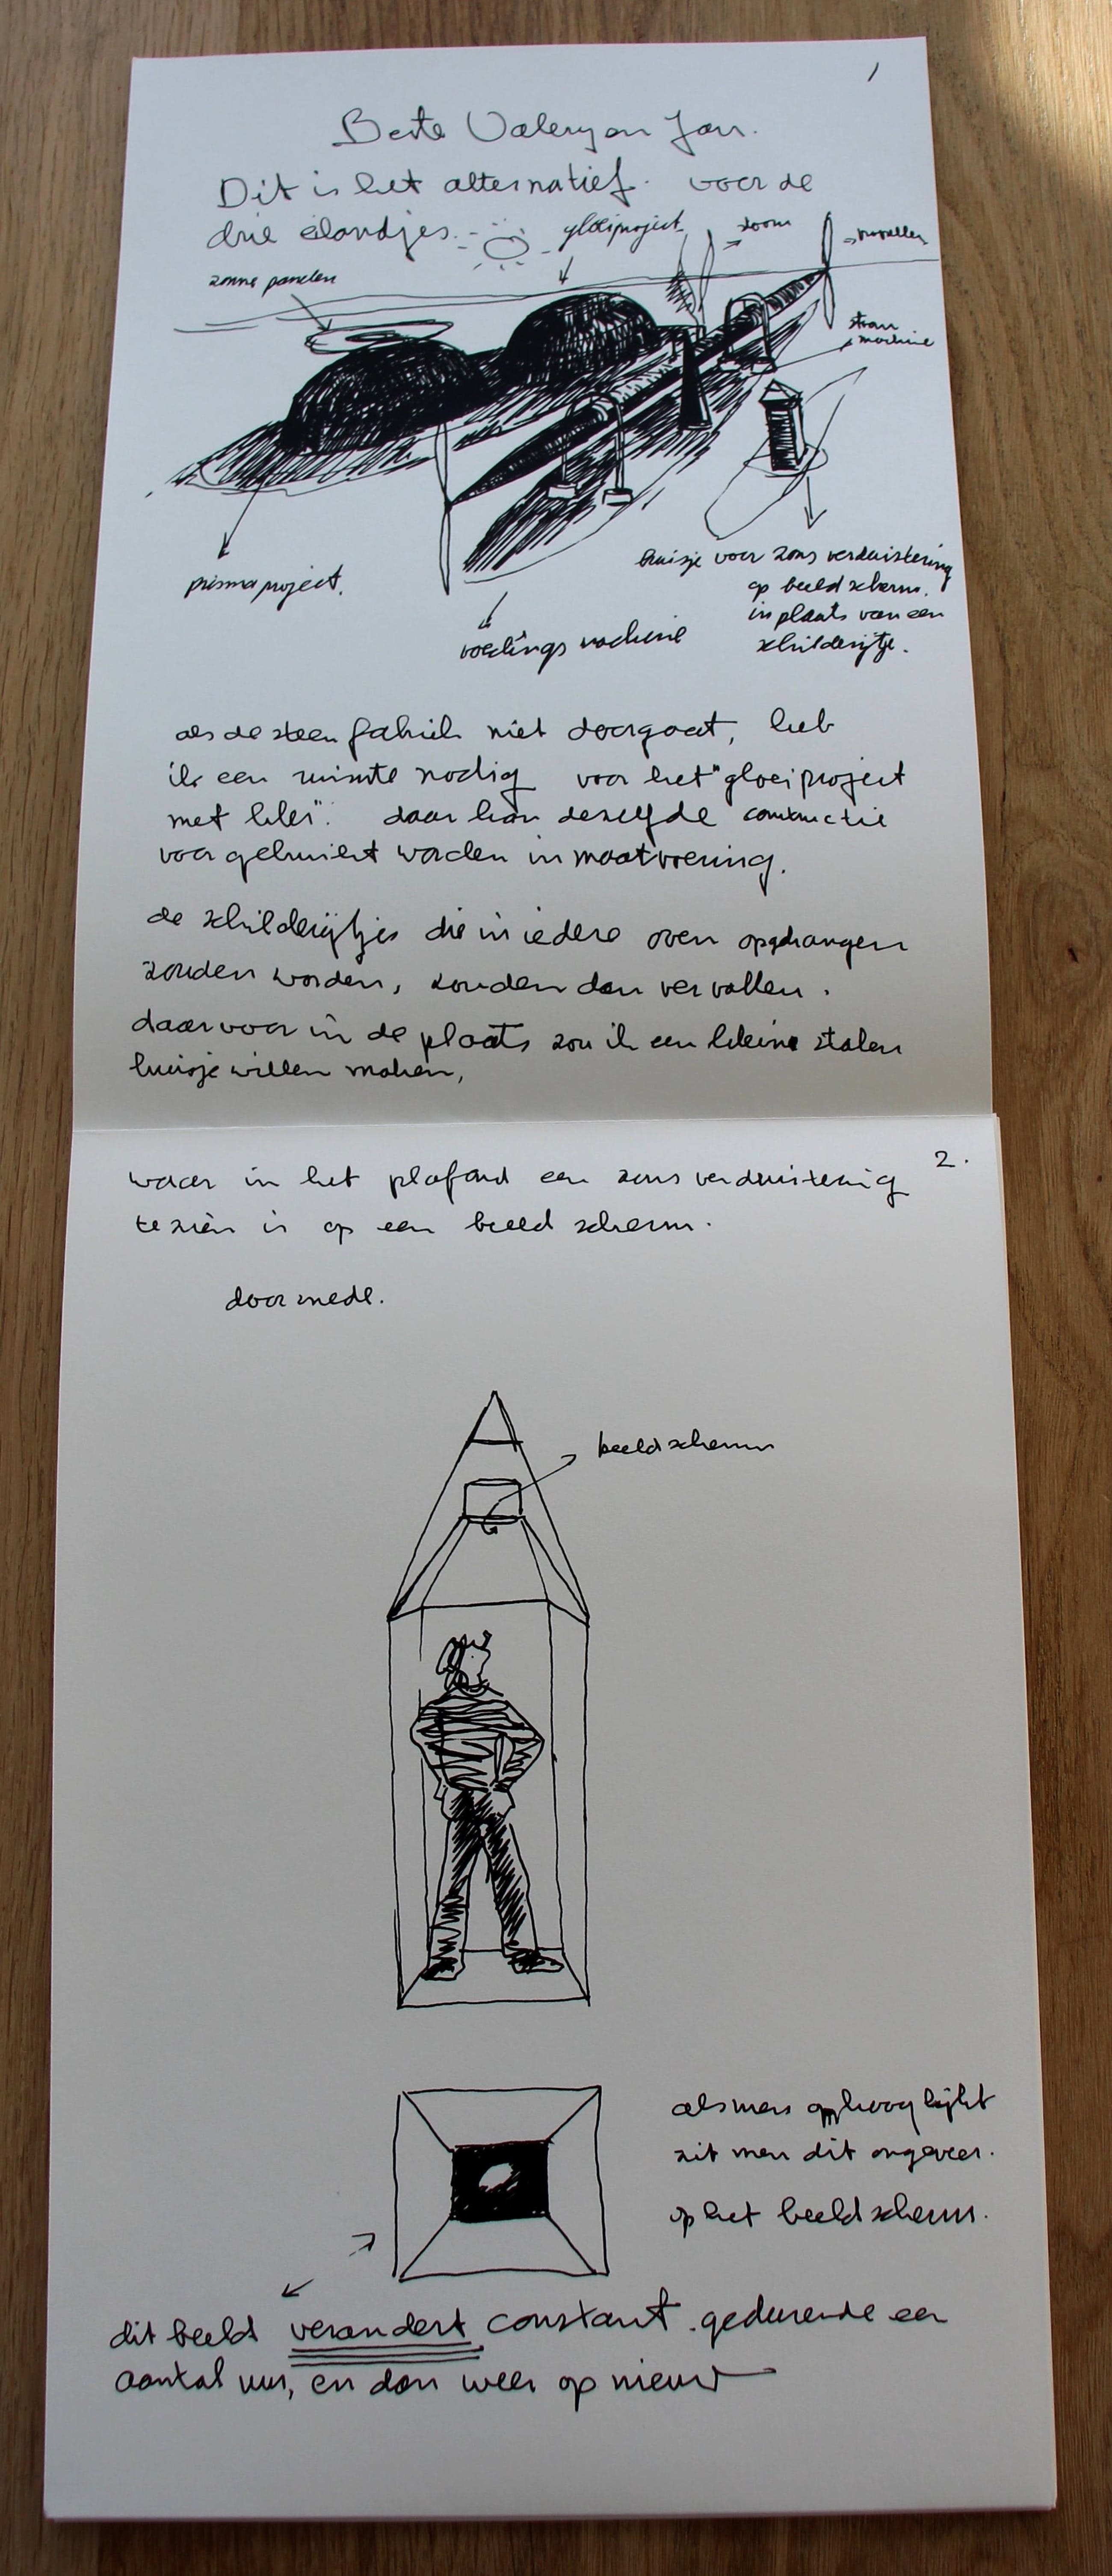 1
Beste Valery en Jan.
Dit is het alternatief. voor de
drie eilandjes.
gloeiproject
zonne panelen
propeller
machine
prisma project.
voedings machine
huisje voor zons verduistering
op beeld scherm.
in plaats van een
schilderijtje.
als de steen fabriek niet doorgaat, heb
ik een ruimte nodig voor het "gloeiproject
met klei". daar kan dezelfde constructie
voor gebruikt worden in maatvoering.
de schilderijtjes die in iedere oven opgehangen
zouden worden, zouden dan vervallen.
daarvoor in de plaats zou ik een kleine stalen
huisje willen maken,
2.
waar in het plafond een zons verduistering
te zien is op een beeld scherm.
beeldscherm
als men omhoog kijkt
ziet men dit ongeveer.
op het beeldscherm.
dit beeld verandert constant. gedurende een
aantal uur, en dan weer op nieuw